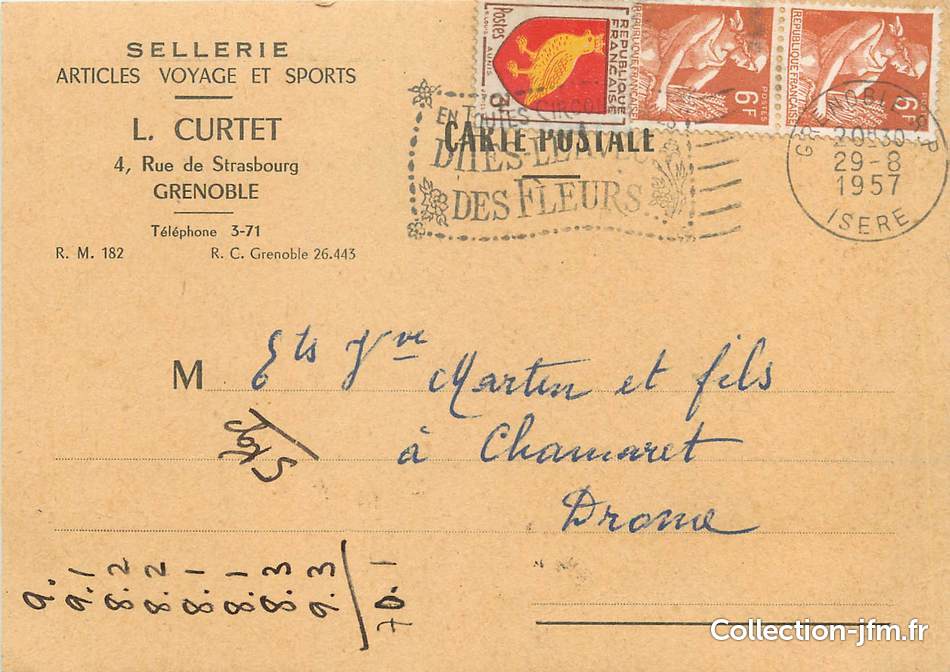 SELLERIE
ARTICLES VOYAGE ET SPORTS
L. CURTET
4, Rue de Strasbourg
GRENOBLE
Téléphone 3-71
R. M. 182 R. C. Grenoble 26.443
Postes
REPUBLIQUE FRANÇAISE
AUNIS
REPUBLIQUE FRANÇAISE
POSTES
6F
REPUBLIQUE FRANÇAISE
POSTES
6F
EN TOUTES CIRCON
DITES-LE AVEC
DES FLEURS...
CARTE POSTALE
GRENOBLE
20H30
29-8
1957
ISERE
M Ets Vve Martin et fils
à Chamaret
Drome
9.
9.1
8.2
8.2
8.1
8.1
8.3
9.3
70.1
Collection-jfm.fr